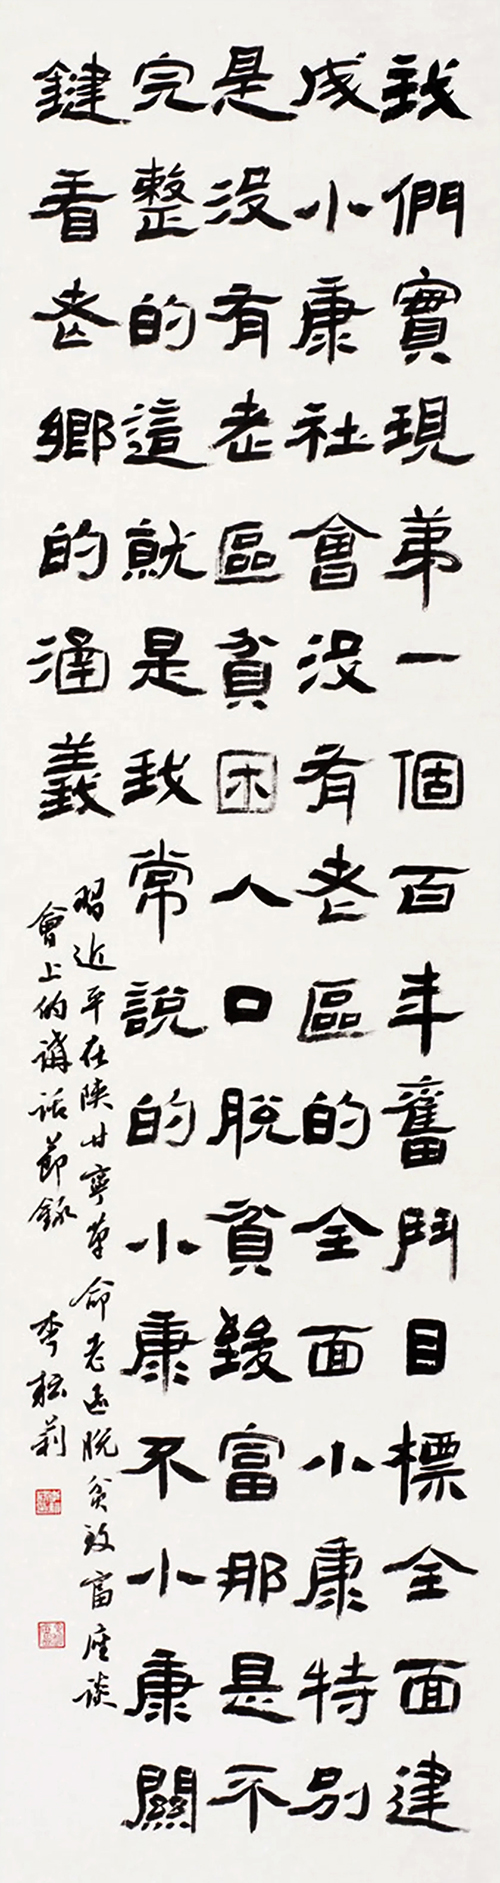 我們實現弟一個百年奮鬥目標全面建
成小康社會沒有老區的全面小康特别
是沒有老區貧困人口脫貧致富那是不
完整的這就是我常說的小康不小康關
鍵看老鄉的涵義
習近平在陝甘寧革命老區脫貧致富座談
會上的講話節録
李松莉